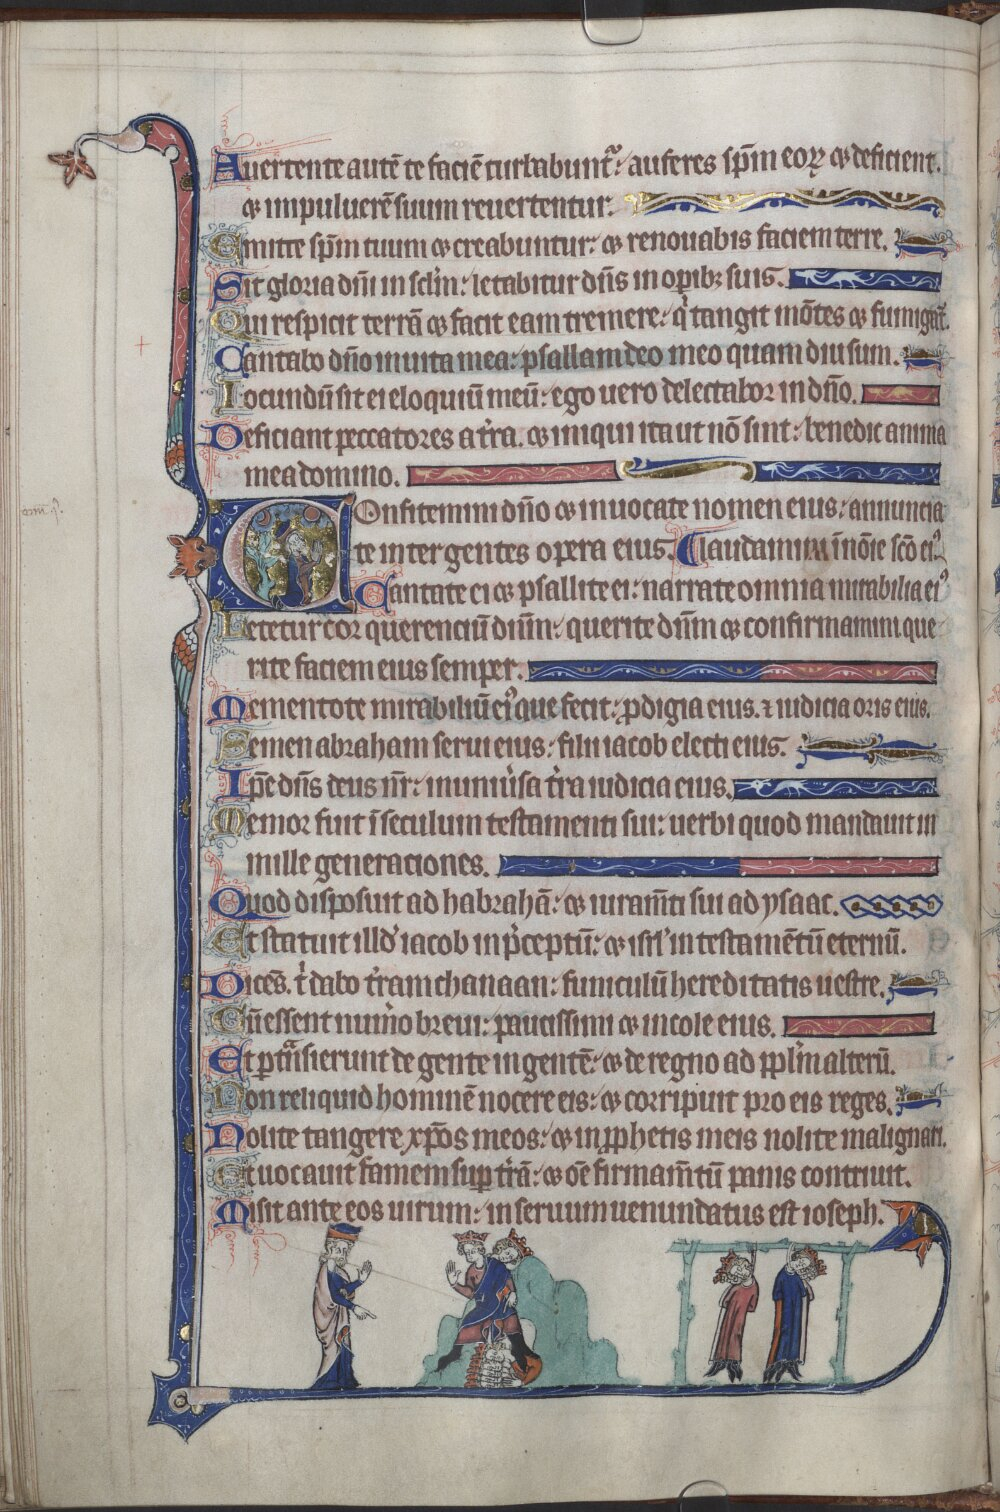 Auertente autē te faciē turbabunt᷑: auferes sp̄m eoꝝ ⁊ deficient.
⁊ in puluerē suum reuertentur:
Emitte sp̄m tuum ⁊ creabuntur: ⁊ renouabis faciem terre.
Sit gloria dn̄i in sc̄lm: letabitur dn̄s in opibꝫ suis.
Qui respicit terrā ⁊ facit eam tremere: q̇ tangit mōtes ⁊ fumigāt.
Cantabo dn̄o in uita mea: psallam deo meo quam diu sum.
Iocundū sit ei eloquiū meū: ego uero delectabor in dn̄o.
Deficiant peccatores a tr̄a. ⁊ iniqui ita ut nō sint: benedic anima
mea domino.
Confitemini dn̄o ⁊ inuocate nomen eius: annuncia
te inter gentes opera eius. Claudamini in nōie sc̄o eiꝰ
Cantate ei ⁊ psallite ei: narrate omnia mirabilia eiꝰ
Letetur cor querenciū dn̄m: querite dn̄m ⁊ confirmamini que
rite faciem eius semper.
Mementote mirabiliū eiꝰ que fecit: ꝓdigia eius. ⁊ iudicia oris eius.
Semen abraham serui eius: filii iacob electi eius.
Ip̄e dn̄s deus nr̄: in uniu᷑sa tr̄a iudicia eius.
Memor fuit ī seculum testamenti sui: uerbi quod mandauit in
mille generationes.
Quod disposuit ad habrahā: ⁊ iuram̄ti sui ad ysaac.
Et statuit illd' iacob in p̄ceptū: ⁊ isrl' in testamētū eternū.
Dicēs. t' dabo tr̄am chanaan: funiculū hereditatis uestre.
Cū essent num̄o breui: paucissimi ⁊ incole eius.
Et ꝑtᷓnsierunt de gente in gentē: ⁊ de regno ad pp̄lm alterū.
Non reliquid hominē nocere eis: ⁊ corripuit pro eis reges.
Nolite tangere xp̄os meos: ⁊ in ꝓphetis meis nolite malignari.
Et uocauit famem suꝑ tr̄ā: ⁊ oē firmam̄tū panis contriuit.
Misit ante eos uirum: in seruum uenundatus est ioseph.